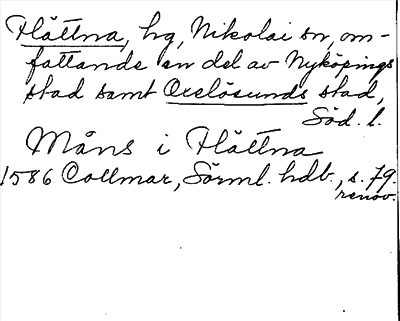 Hättna, hg, Nikolai sn, om-
fattande en del av Nyköpings
stad samt Oxelösunds stad,
Söd. l.
Måns i Hättna
1586 Collmar, Sörml. hdb., s. 79.
renov.